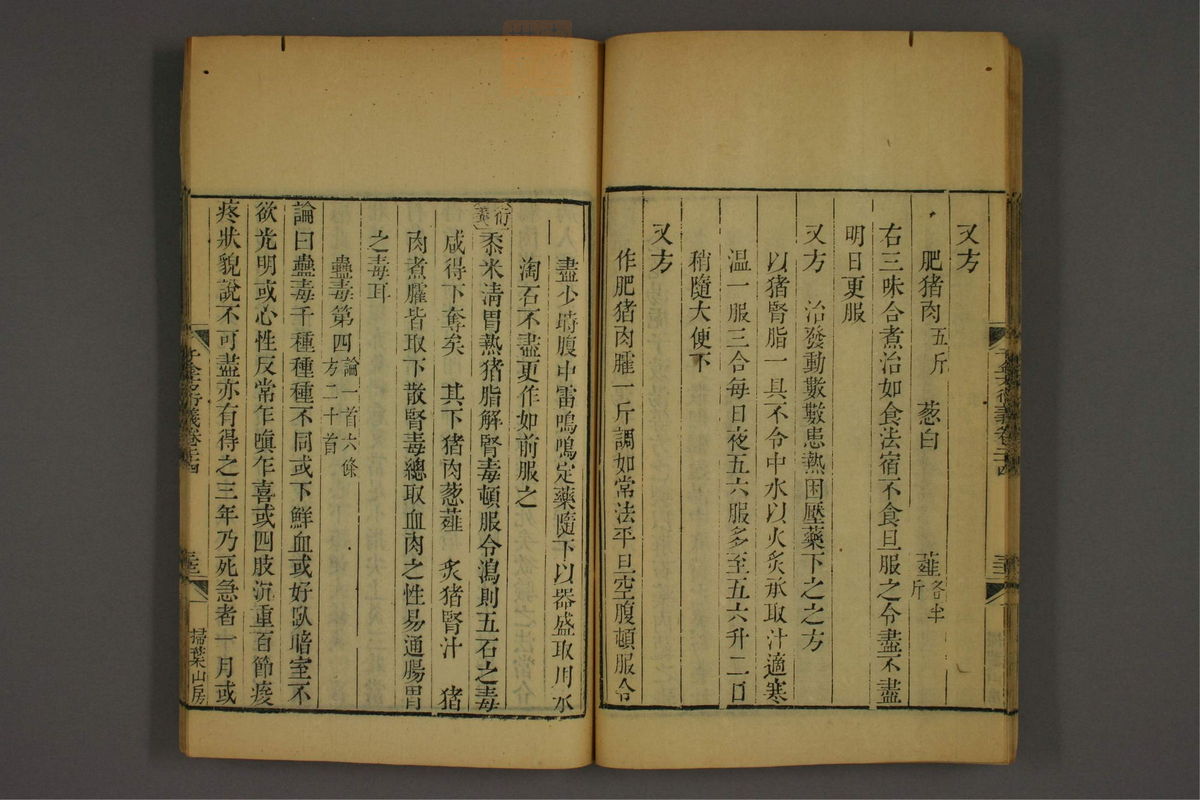 又方
肥猪肉五斤　葱白　薤各半斤
右三味合煮治如食法宿不食旦服之令盡不盡
明日更服
又方　治發動數數患熱困壓藥下之之方
以猪腎脂一具不令中水以火炙承取汁適寒
温一服三合每日夜五六服多至五六升二日
稍隨大便下
又方
作肥猪肉臛一斤調如常法平旦空腹頓服令
盡少時腹中雷鳴鳴定藥隨下以器盛取用水
淘石不盡更作如前服之
衍義黍米清胃熱猪脂解腎毒頓服令瀉則五石之毒
咸得下奪矣　其下猪肉葱薤　炙猪腎汁　猪
肉煮臛皆取下散腎毒總取血肉之性易通腸胃
之毒耳
蠱毒第四論一首六條方二十首
論曰蠱毒千種種種不同或下鮮血或好臥暗室不
欲光明或心性反常乍嗔乍喜或四肢沉重百節痠
疼狀貌說不可盡亦有得之三年乃死急者一月或
千金方衍義卷二十四
掃葉山房